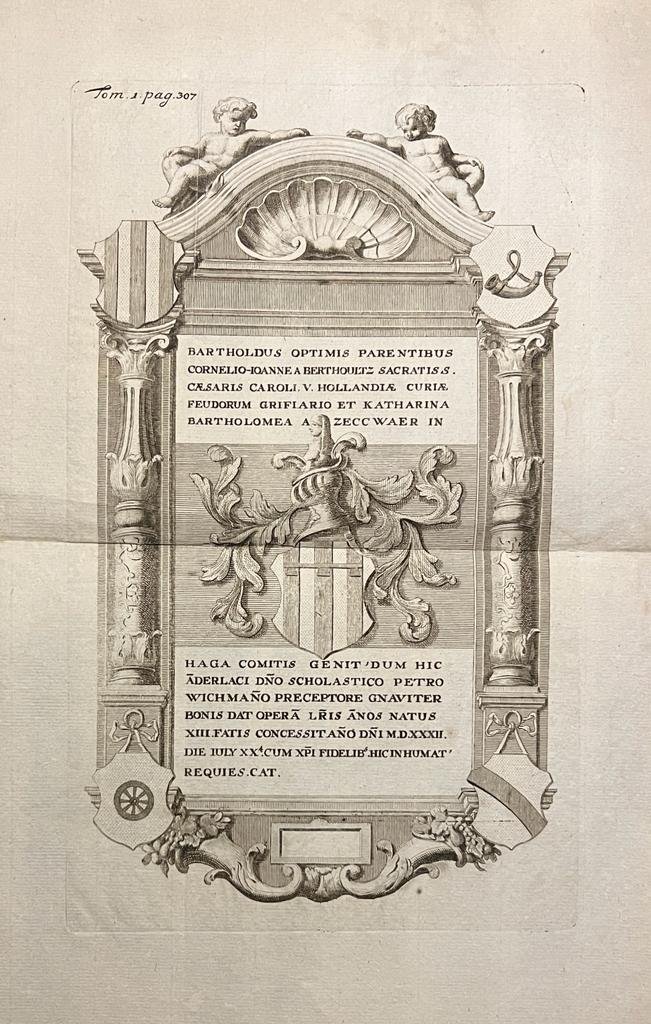 Tom. 1. pag. 307
BARTHOLDUS OPTIMIS PARENTIBUS
CORNELIO-IOANNE A BERTHOULTZ SACRATISS.
CÆSARIS CAROLI. V. HOLLANDIÆ CURIÆ
FEUDORUM GRIFIARIO ET KATHARINA
BARTHOLOMEA A ZECCWAER IN
HAGA COMITIS GENIT' DUM HIC
ĀDERLACI DÑO SCHOLASTICO PETRO
WICHMAÑO PRECEPTORE GNAVITER
BONIS DAT OPERĀ LR̃IS ĀNOS NATUS
XIII. FATIS CONCESSIT AÑO DÑI M.D.XXXII.
DIE IULY XX⁴. CUM XP̃I FIDELIB⁹. HIC INHUMAT'
REQUIES.CAT.